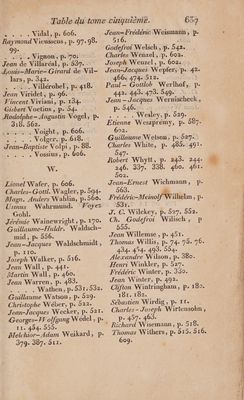 Table du tome cinquième. 657
. . . . Vidal, p. 606.
Raymond Vieussens, p. 97. 98.
. . . . Vignon, p. 70.
Jean de Villaréal, p. 537.
Louis-Marie-Girard de Villars, p. 342.
. . . . Villérobel, p. 418.
Jean Viridet, p. 96.
Vincent Viviani, p. 134.
Gisbert Voetius, p. 54.
Rodolphe-Augustin Vogel, p.
318. 562.
. . . . Voight, p. 606.
. . . . Volger, p. 618.
Jean-Baptiste Volpi, p. 88.
. . . . Vossius, p. 606.
W.
Lionel Wafer, p. 606.
Charles-Gottl. Wagler, p. 594.
Magn. Anders Wahlin, p. 560.
Ursnus Wahrmund. Voyez
Gohl.
Jérémie Wainewright, p. 170.
Guillaume-Huldr. Waldschmid, p. 556.
Jean-Jacques Waldschmidt,
p. 110.
Joseph Walker, p. 516.
Jean Wall, p. 441.
Martin Wall, p. 460.
Jean Warren, p. 483.
. . . . Wathen, p. 531. 532.
Guillaume Watson, p. 529.
Christophe Wéber, p. 522.
Jean-Jacques Wecker, p. 521.
Georges-Wolffgang Wedel, p.
11. 454. 555.
Melchior-Adam Weikard, p.
379. 387. 512.
Jean-Frédéric Weismann, p.
516.
Godefroi Welsch, p. 542.
Charles Wenzel, p. 602.
Joseph Wenzel, p. 602.
Jean-Jacques Wepfer, p. 42.
466. 474. 512.
Paul-Gottlob Werlhof, p.
442. 443. 473. 549.
Jean-Jacques Wernischeck,
p. 546.
. . . . Wesley, p. 529.
Étienne Weszprémy, p. 587.
602.
Guillaume Wetson, p. 527.
Charles White, p. 485. 491.
547.
Robert Whytt, p. 243. 244.
246. 337. 338. 460. 461.
502.
Jean-Ernest Wichmann, p.
563.
Frédéric-Meinolf Wilhelm, p.
531.
J. C. Wilckey, p. 527, 552.
Ch. Godefroi Wilisch, p
555.
Jean Willemse, p. 451.
Thomas Willis, p. 74. 75. 76.
434. 474. 493. 554.
Alexandre Wilson, p. 380.
Henri Winkler, p. 527.
Frédéric Winter, p. 330.
Jean Winter, p. 492.
Clifton Wintringham, p. 180.
181. 182.
Sébastien Wirdig, p. 11.
Charles-Joseph Wirtensohn,
p. 457. 463.
Richard Wisemann, p. 518.
Thomas Withers, p. 515. 516.
609.